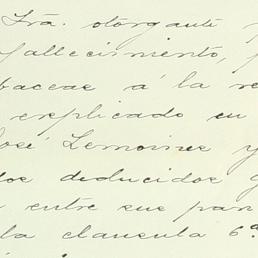 Sra. otorgante
fallecimiento,
baceas á la re
explicado en
José Lemoine y
dos deducidos g
entre sus par
la clausula 6ª